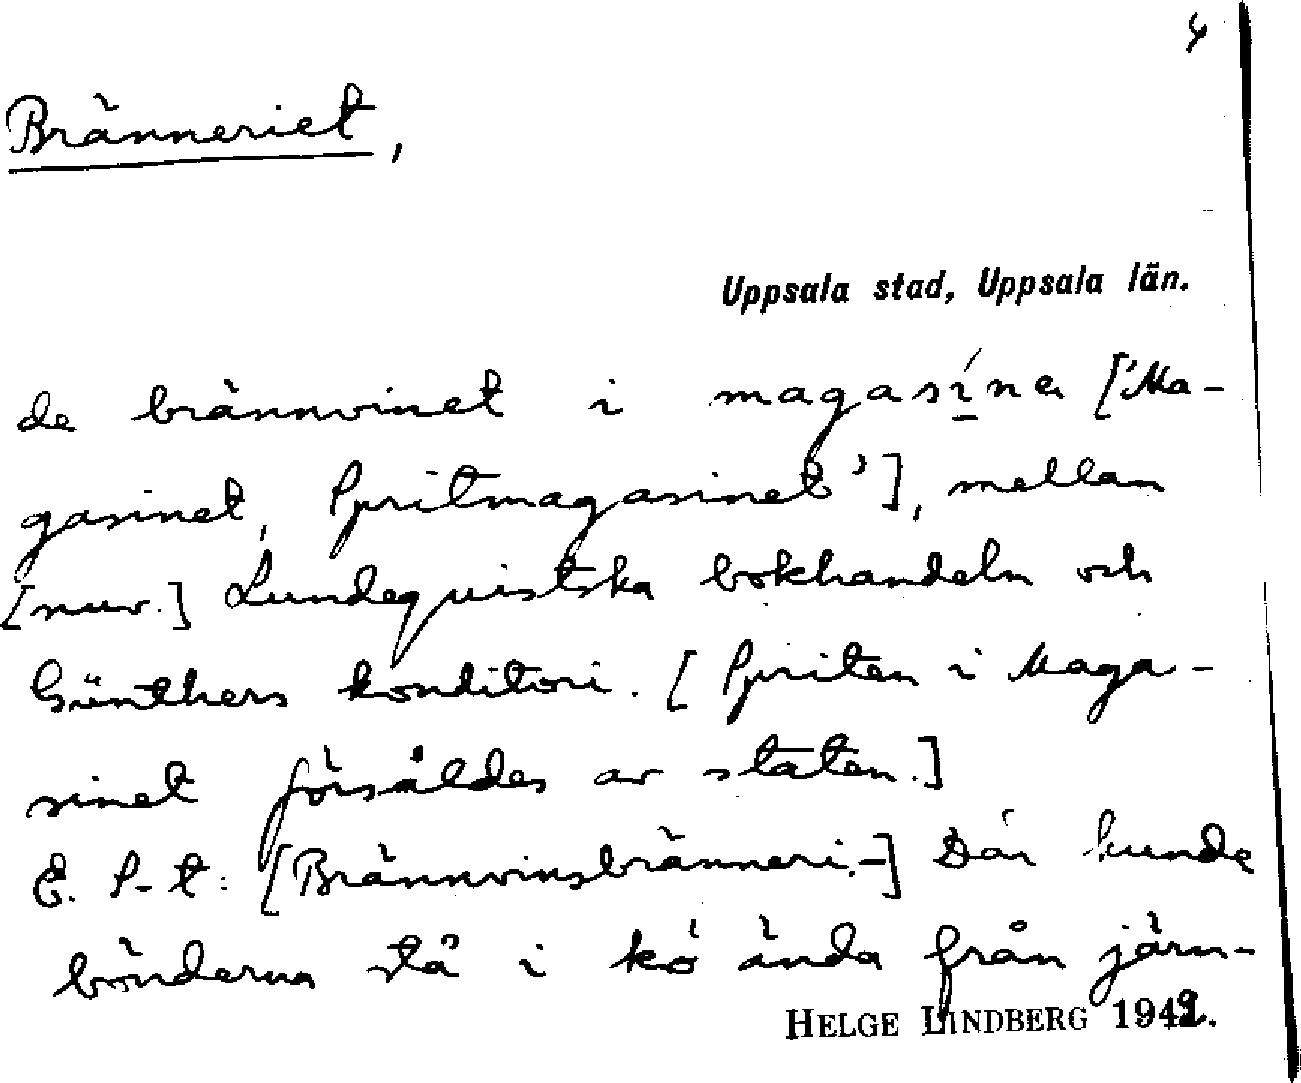 4
Bränneriet,
Uppsala stad, Uppsala län.
de brännvinet i magasína ['Ma-
gasinet, Spritmagasinet'], mellan
[nuv.] Lundequistska bokhandeln och
Günthers konditori. [Spriten i Maga-
sinet försåldes av staten.]
E. S-t: [Brännvinsbränneri.-] Där kunde
bönderna stå i kö ända från järn-
HELGE LINDBERG 1942.